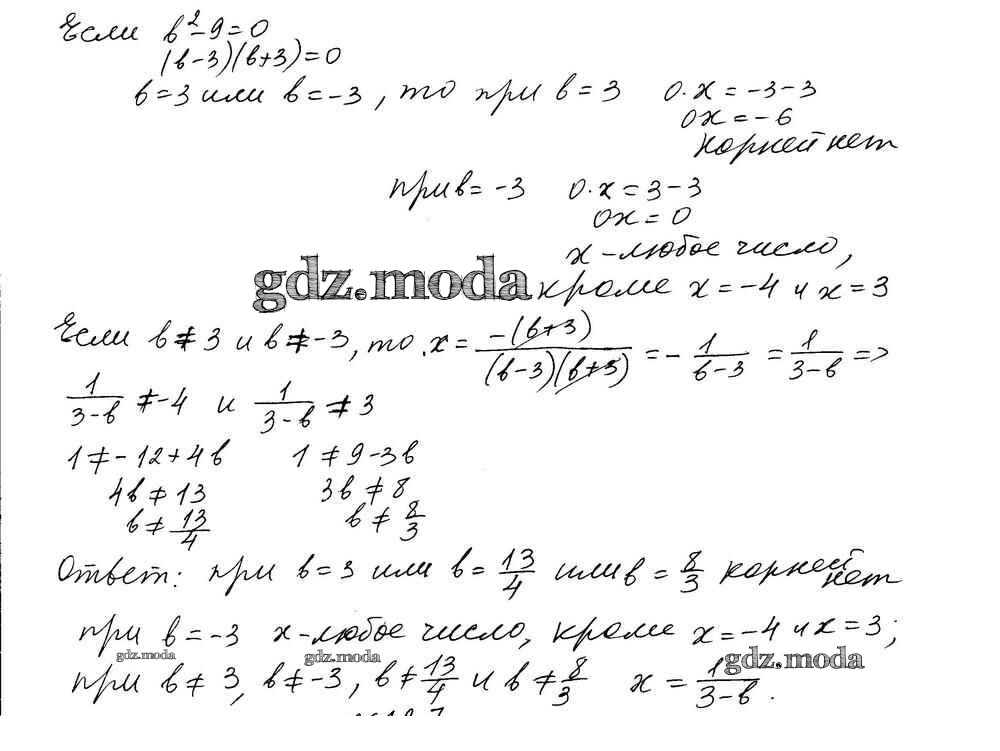 Если b²-9=0
(b-3)(b+3)=0
b=3 или b=-3, то при b=3 0·x=-3-3
0x=-6
корней нет
при b=-3 0·x=3-3
0x=0
x-любое число,
gdz.moda кроме x=-4 и x=3
Если b≠3 и b≠-3, то x = -(b+3)/((b-3)(b+3)) = -1/(b-3) = 1/(3-b) =>
1/(3-b) ≠ -4 и 1/(3-b) ≠ 3
1≠-12+4b 1≠9-3b
4b≠13 3b≠8
b≠13/4 b≠8/3
Ответ: при b=3 или b=13/4 или b=8/3 корней нет
при b=-3 x-любое число, кроме x=-4 и x=3;
gdz.moda gdz.moda gdz.moda
при b≠3, b≠-3, b≠13/4 и b≠8/3 x=1/(3-b).